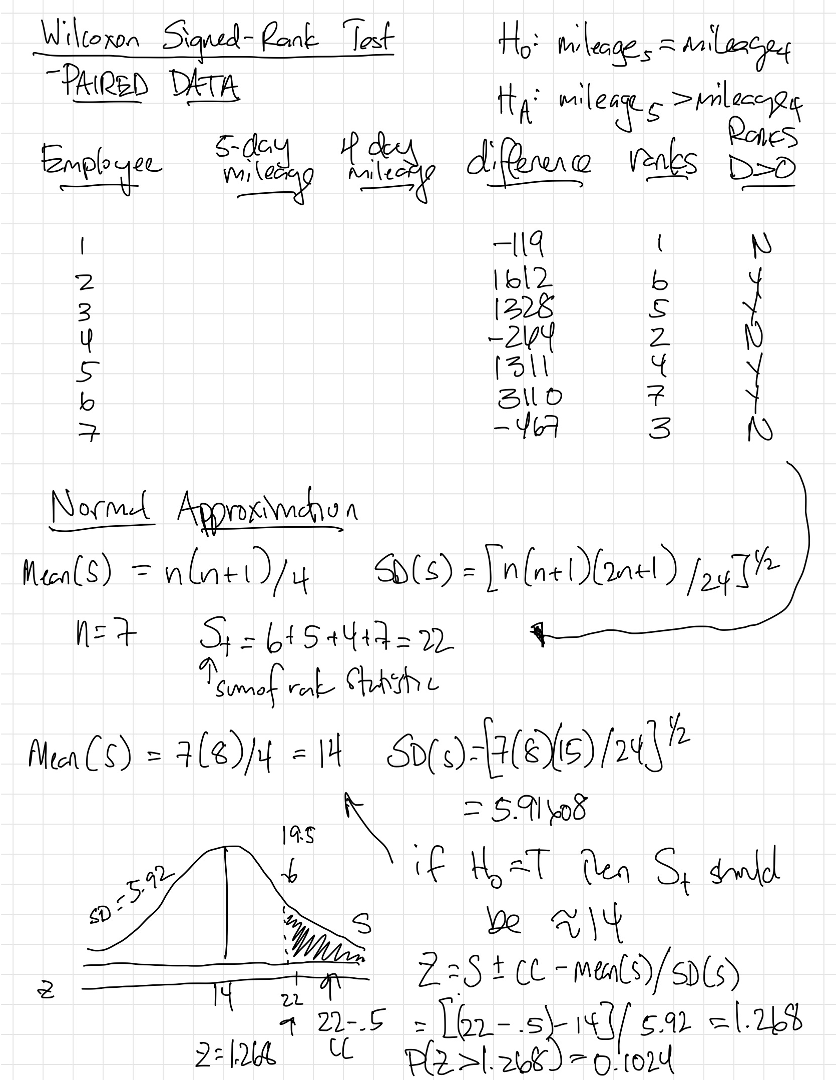 Wilcoxon Signed-Rank Test
-PAIRED DATA
H₀: mileage₅ = mileage₄
H_A: mileage₅ > mileage₄
Employee 5-day mileage 4 day mileage difference ranks Ranks D>0
1 -119 1 N
2 1612 6 Y
3 1328 5 Y
4 -264 2 N
5 1311 4 Y
6 3110 7 Y
7 -467 3 N
Normal Approximation
Mean(S) = n(n+1)/4 SD(S) = [n(n+1)(2n+1)/24]^1/2
n=7 S₊ = 6+5+4+7 = 22
↑ sum of rank statistic
Mean(S) = 7(8)/4 = 14 SD(S) = [7(8)(15)/24]^1/2
= 5.91608
if H₀=T then S₊ should
be ≈14
SD = 5.92
19.5
S
Z
14 22
22-.5
CC
Z=1.268
Z = S ± CC - mean(S)/SD(S)
= [(22-.5)-14]/5.92 = 1.268
P(Z>1.268) = 0.1024